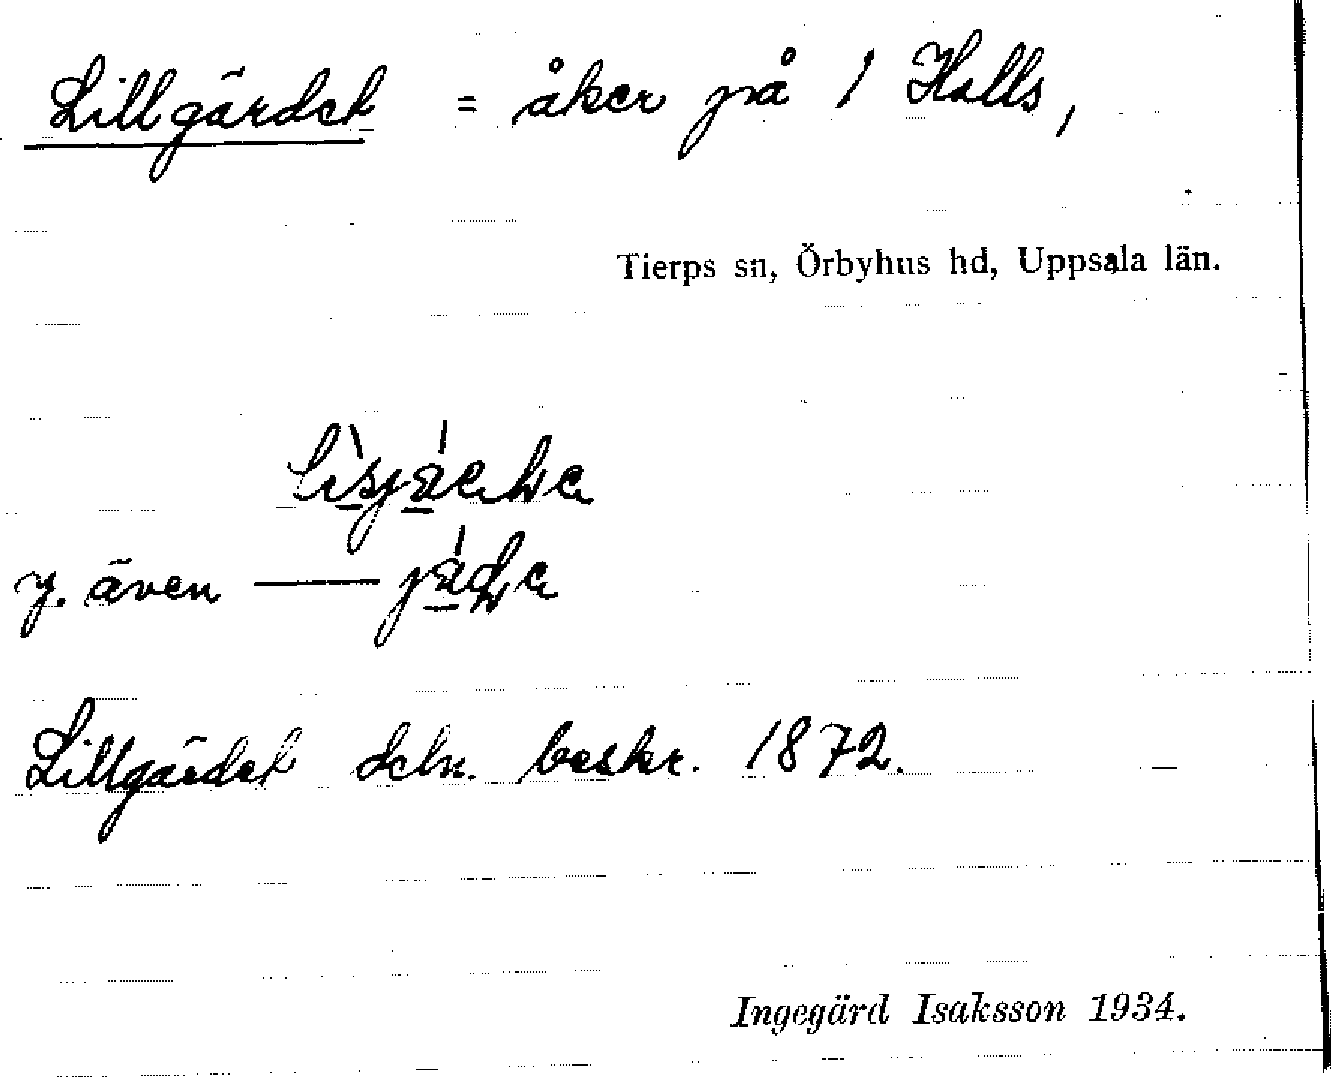 Lillgärdet = åker på 1 Halls,
Tierps sn, Örbyhus hd, Uppsala län.
y. även ——
Lillgärdet deln. beskr. 1872.
Ingegärd Isaksson 1934.